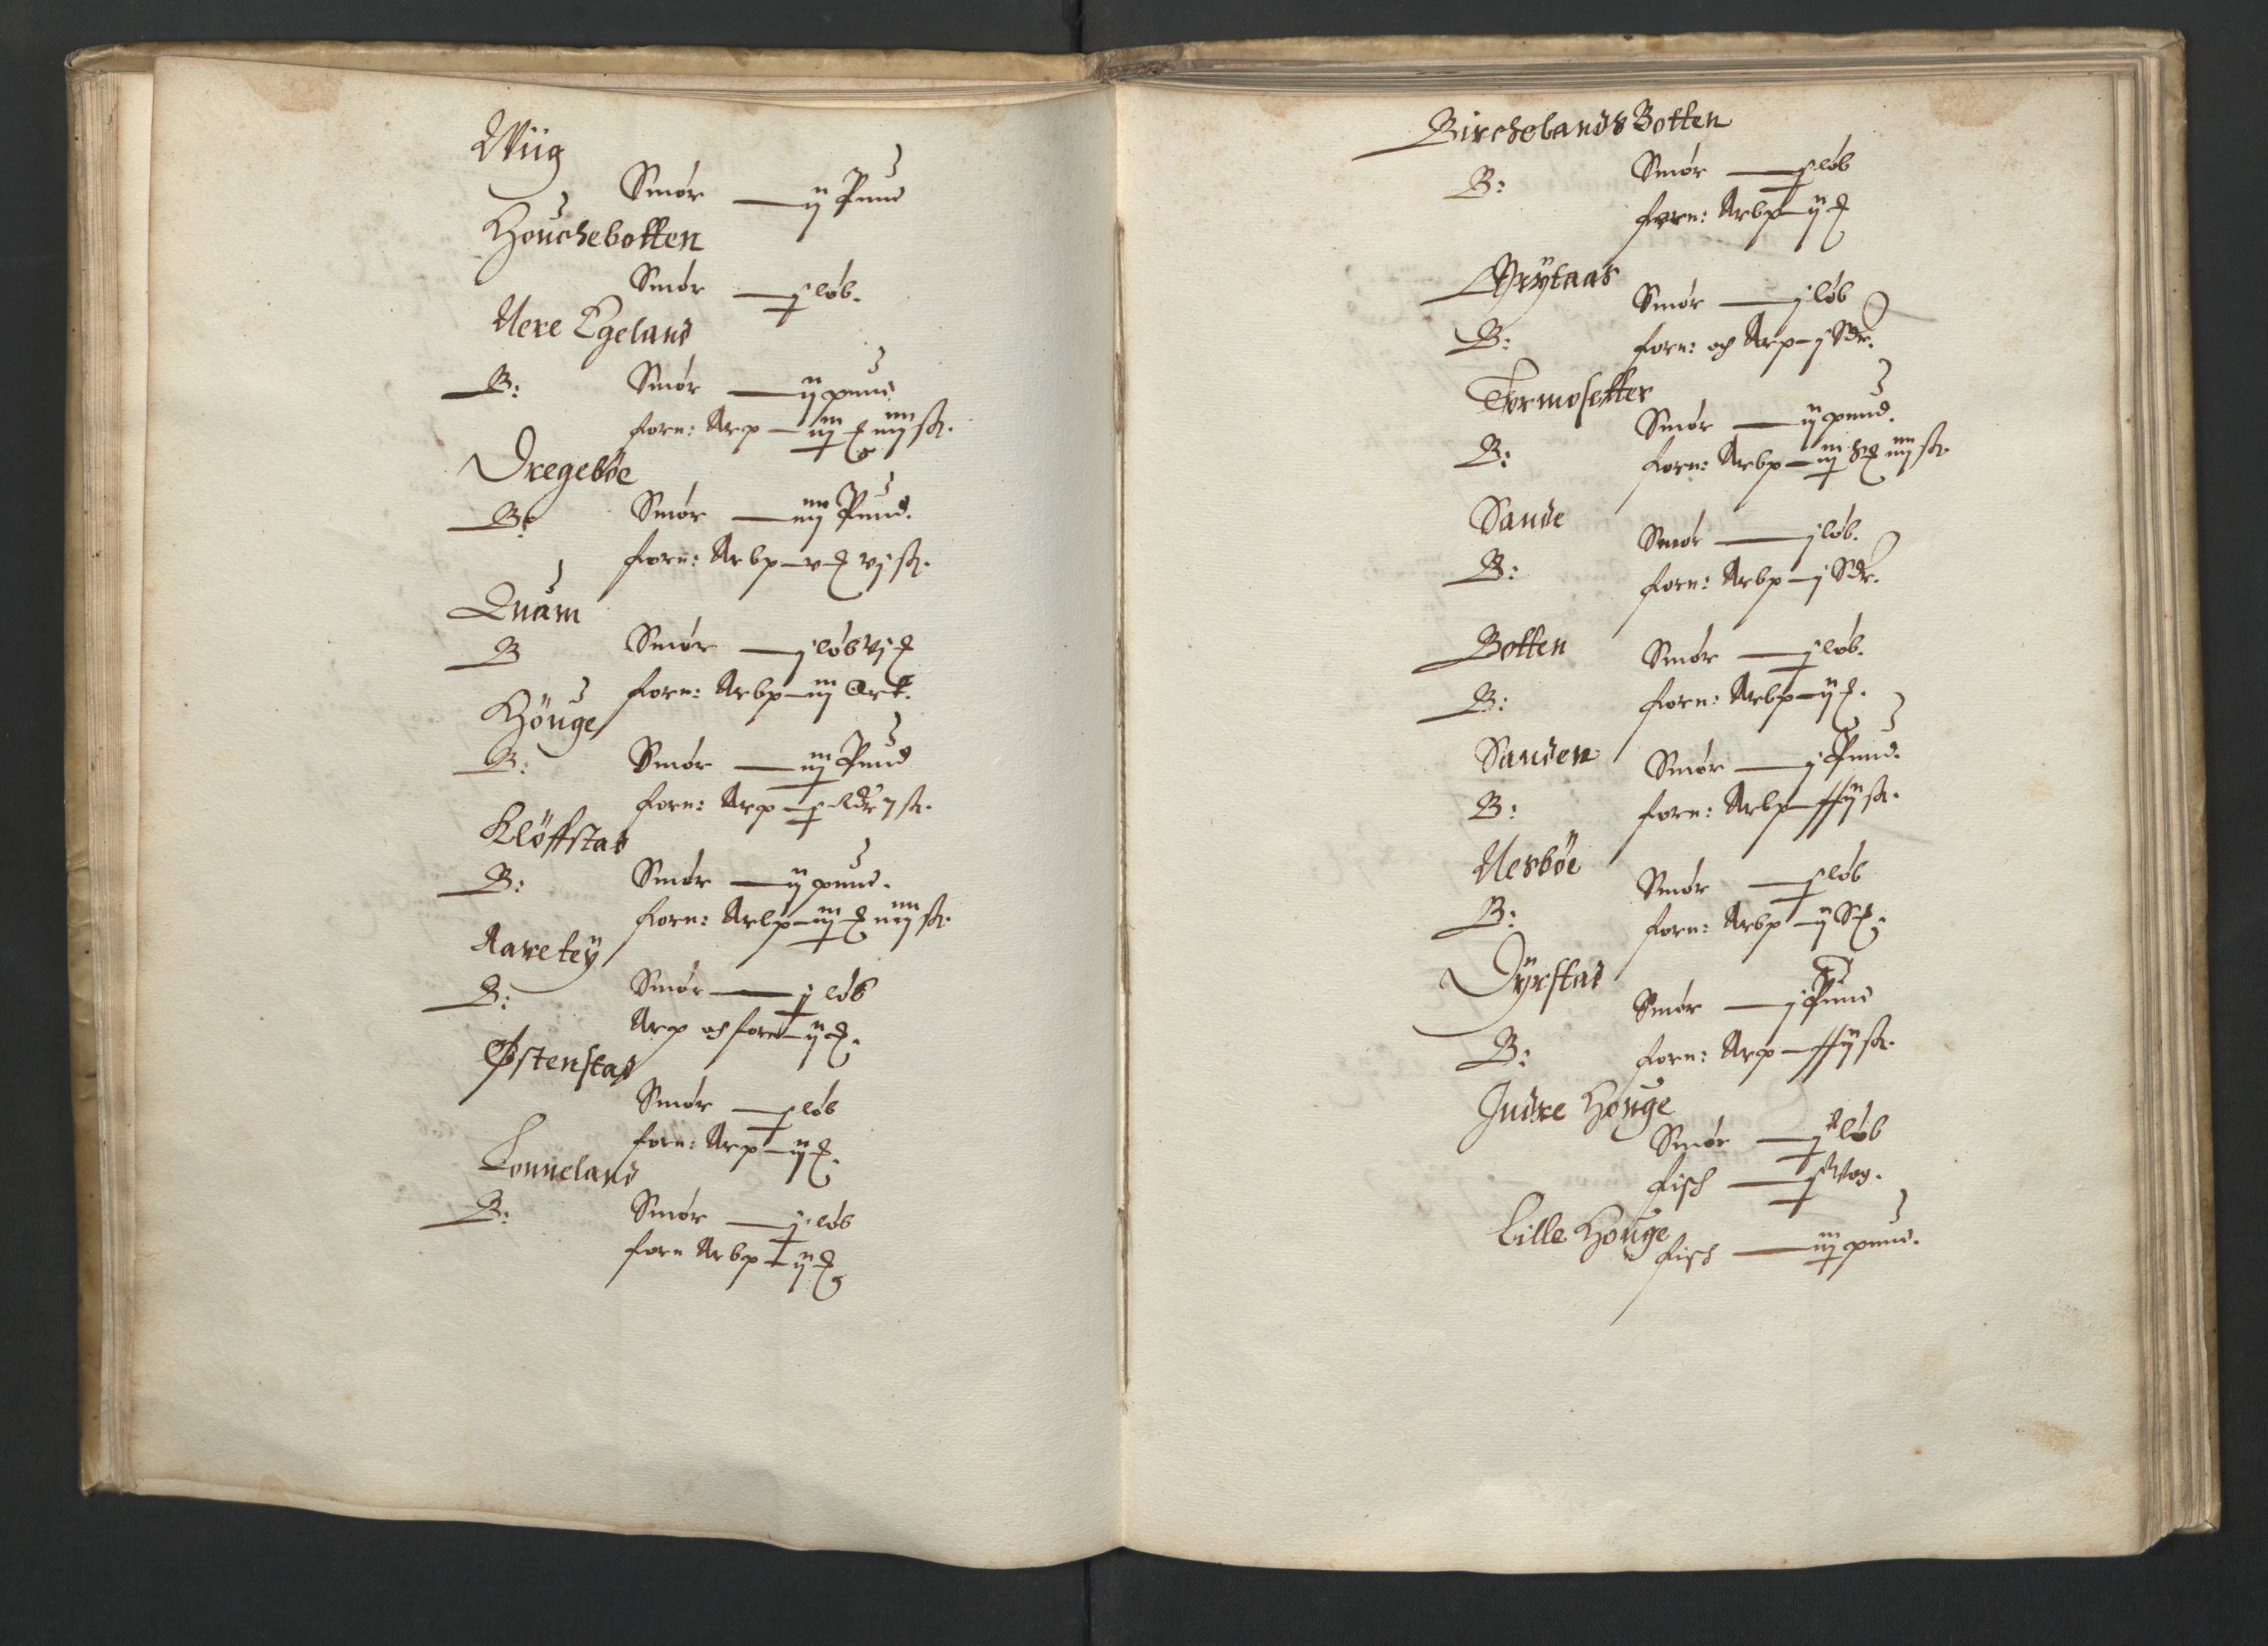 Wiig
Smör — ij Pund
Houchebotten
Smör — j löb.
Nere Egeland
B: Smör — ij pund
forn: Arp — iij ₰ iiij sk.
Dregeböe
B: Smör — iiij Pund.
forn: Arbp — v ₰ vj sk.
Quam
B Smör — j löb vj ₰
forn: Arbp — iij Ort.
Höuge
B: Smör — iij Pund
forn: Arp — j Rdr j sk.
Klöffstad
B: Smör — ij pund.
forn: Arbp — iij ₰ iiij sk.
Aaretey
B: Smör — j löb
Arp och forn — ij ₰.
Østenstad
Smör — j löb
forn: Arp — ij ₰.
Lonneland
B: Smör — j löb
forn Arbp — ij ₰
Birchelands Botten
B: Smör — j löb
forn: Arbp — ij ₰
Grytaas
Smör — j löb
B: forn: och Arp — j Sdr.
Tormosetter
Smör — ij pund.
B: forn: Arbp — iij ₰ iiij sk.
Sande
Smör — j löb.
B: forn: Arbp — j Sdr.
Botten Smör — j löb.
B: forn: Arbp — ij ₰.
Sanden Smör — j Pund.
B: forn: Arbp — ij sk.
Nesböe
Smör — j löb
B: forn: Arbp — ij ₰.
Dyrstad
Smör — j Pund
B: forn: Arp — ij sk.
Indre Houge
Smör — j löb
fisch — j Wog.
Lille Houge
fisch — iij pund.